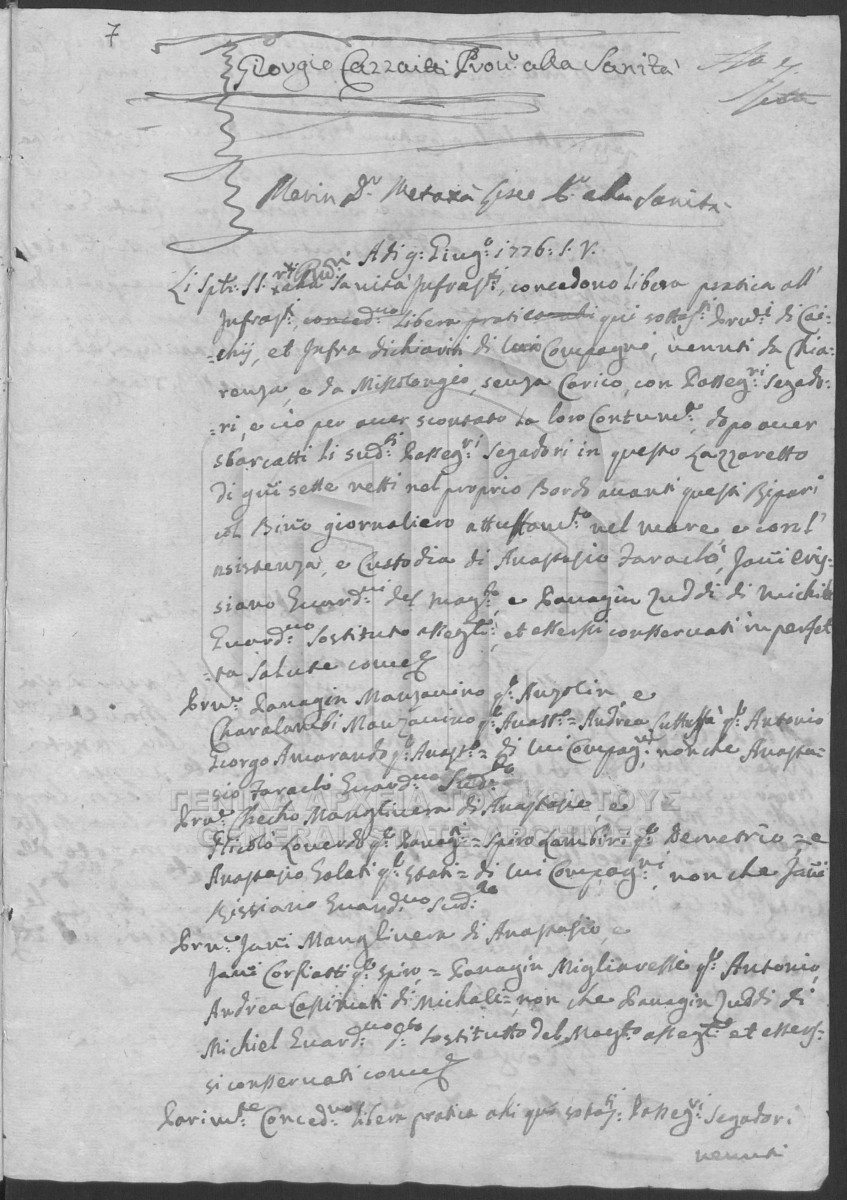 7
Giorgio Cazzaitti Prov:r alla Sanità
Marin D:r Metaxà Prov:r alla Sanità
Adi 9: Giug:o 1776: S. V.
Li Sp:ti SS:ri Prov:ri alla Sanità Infras:ti, concedono Libera pratica all'
Infras:ti, conced:no Libera pratica alli qui sotto Prvn:i di Cai-
-chij, et Infra dichiariti di lui Compagni, venuti da Chia-
renza, e da Missolongio, senza Carico, con Passeg:ri Segado-
-ri, e ciò per aver scontato la loro Contum:a, dopo aver
sbarcatti li sud:ti Passeg:ri Segadori in questo Lazzaretto
di giñi sette netti nel proprio Bordo avanti questi Ripari
col giornaliero nel mare, e con l'
assistenza, e Custodia di Anastasio Faraclò, Jañi Cris-
siano Guard:ni del Mag:to, e Panagin Zuddi di Michiel
Guard:no Sostituto asseg:to, et essersi conservati in perfet-
-ta Salute come
Prvn:e Panagin Manzavino q:m Anzolin, e
Charalambi Manzavino q:m Anast:o = Andrea q:m Antonio
Giorgo Amorando q:m Anast:o = di lui Compag:ni, non che Anasta-
sio Faraclò Guard:no Sud:to
ΓΕΝΙΚΑ ΑΡΧΕΙΑ ΤΟΥ ΚΡΑΤΟΥΣ
Prvn:e Checho Manglivera di Anastasio, e
GENERAL STATE ARCHIVES
Nicolò Loverdo q:m Panag:n = Spiro Lambiri q:m Demetrio = e
Anastasio Golati q:m Stati = di lui Compag:ni, non che Jañi
Crissiano Guard:no Sud:to
Prvn:e Jañi Manglivera di Anastasio, e
Jañi Corfiatti q:m Spiro, = Panagin Migliaressi q:m Antonio,
Andrea Cassimati di Michali =, non che Panagin Zuddi di
Michiel Guard:no Sostitutto del Mag:to asseg:to et essers-
si conservati come
Parim:te Conced:no Libera pratica alli qui sotto Passeg:ri Segadori
venuti